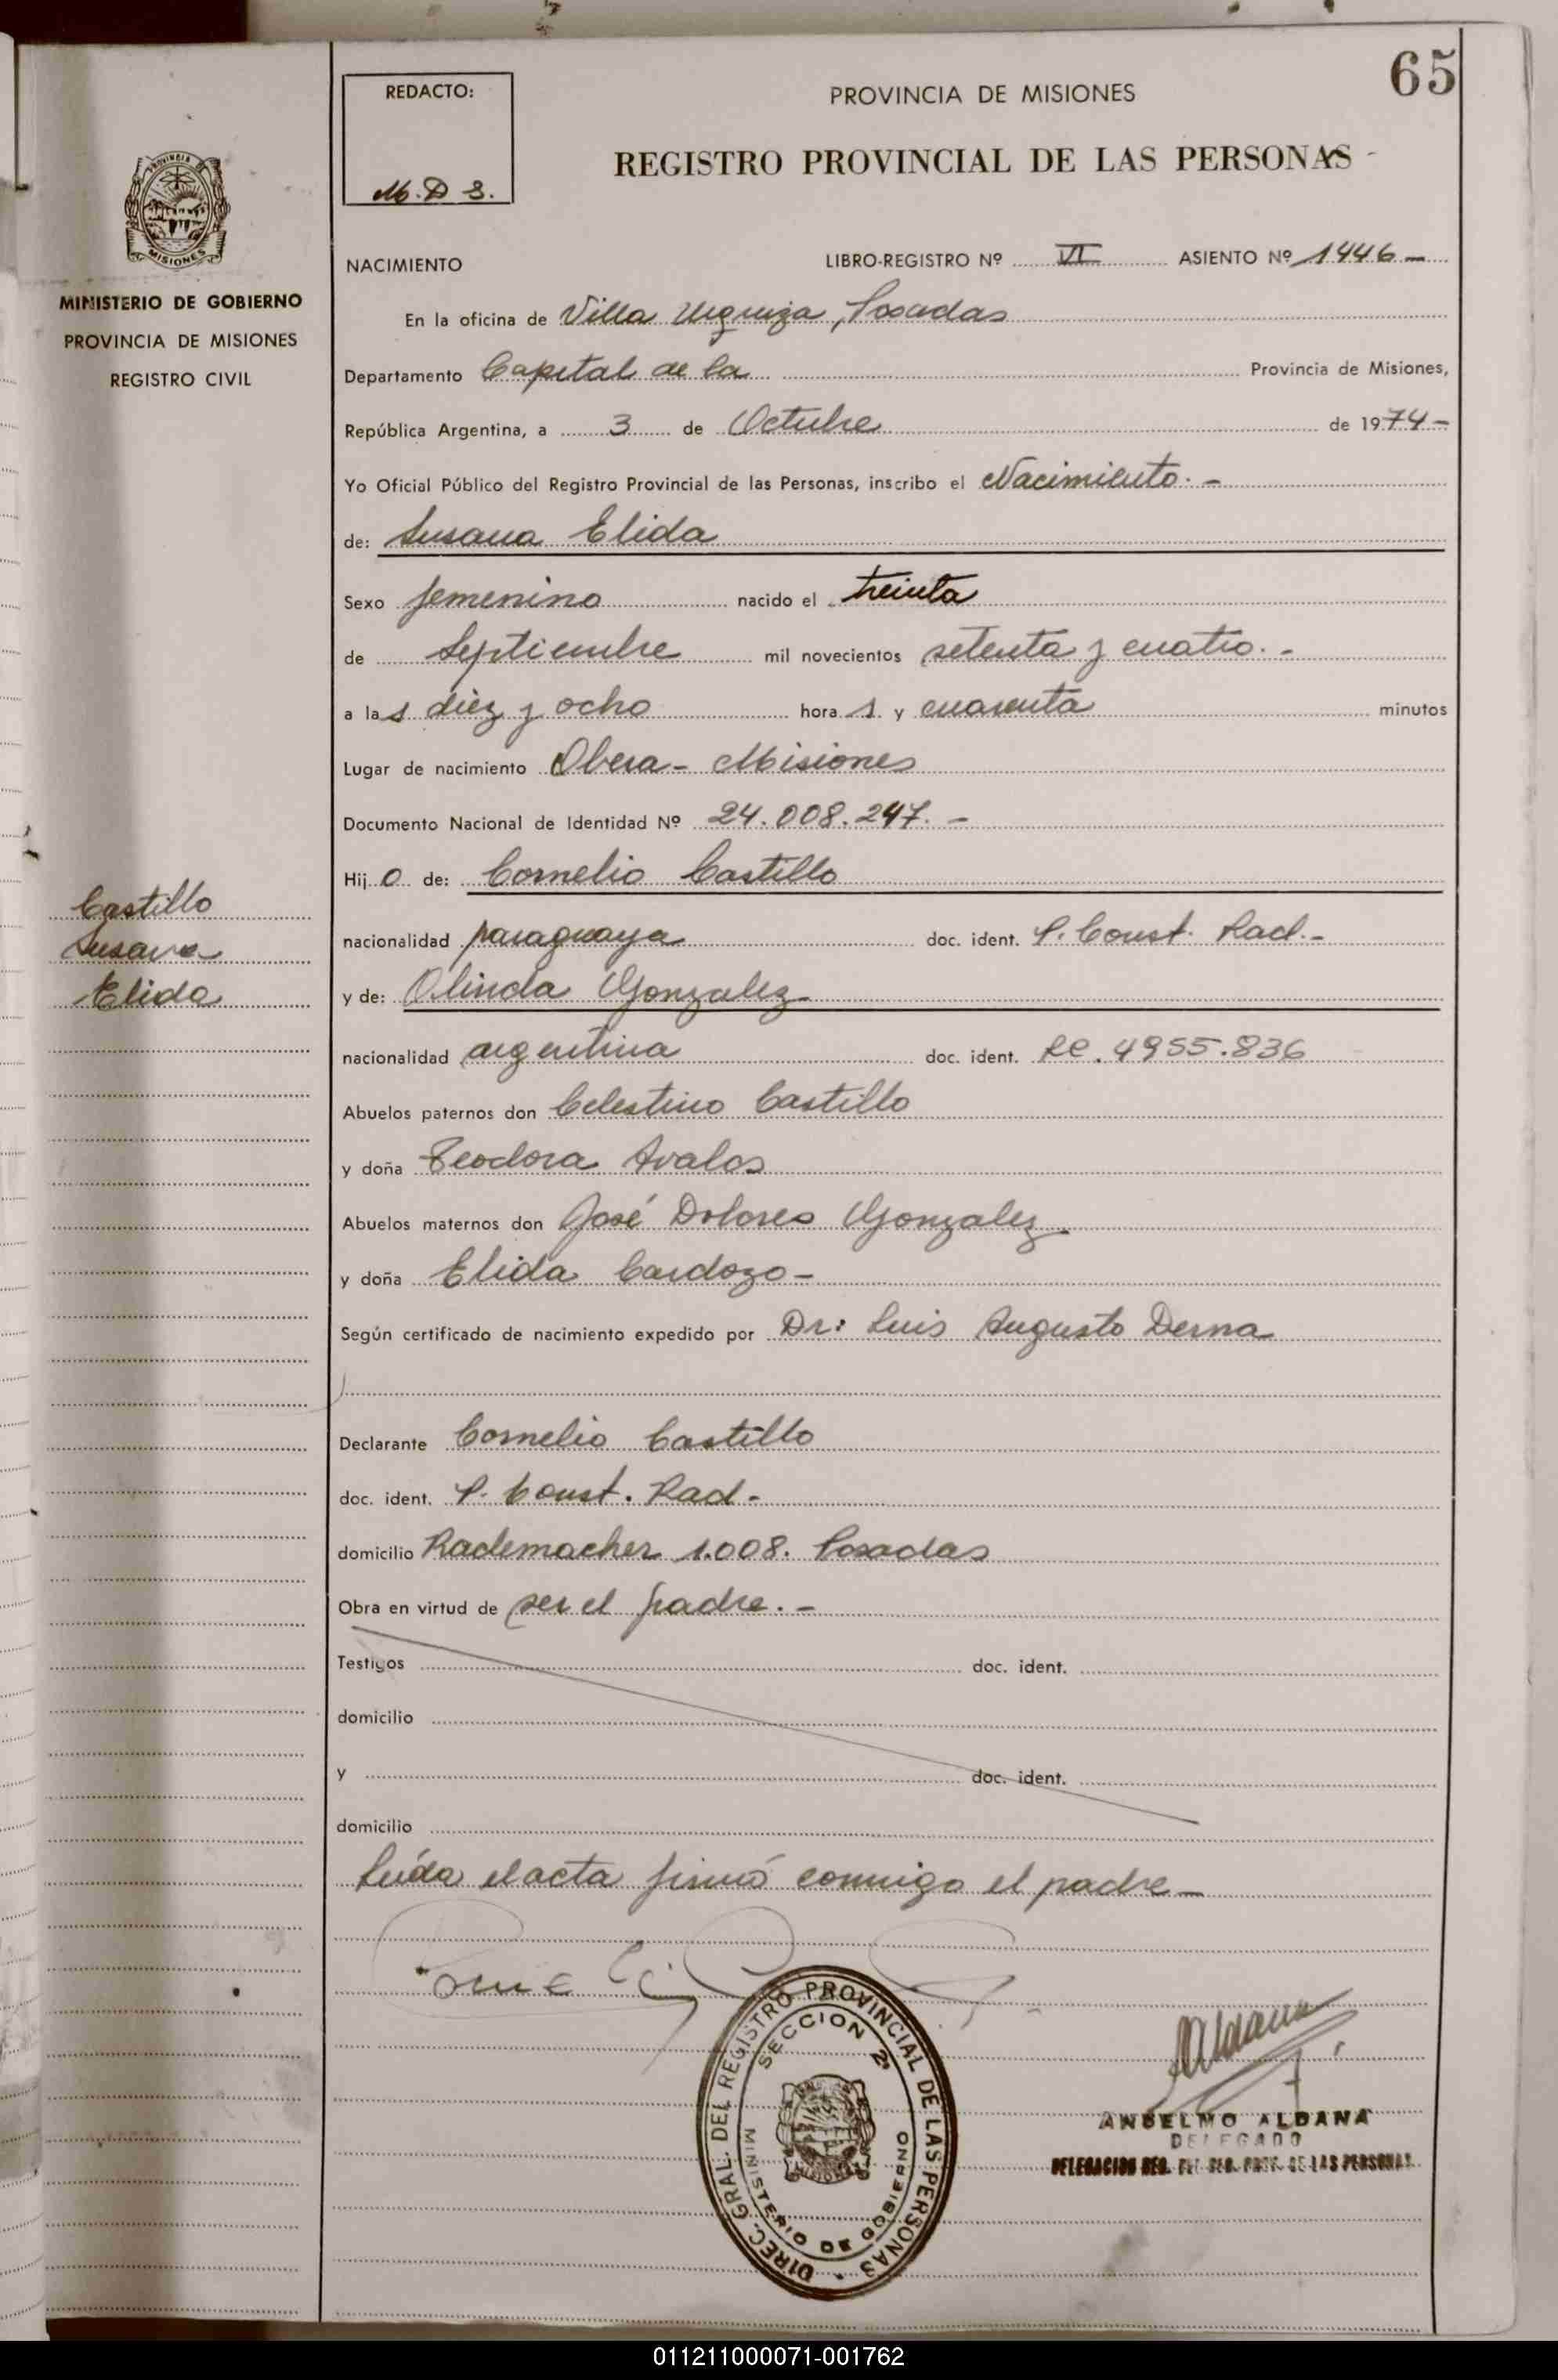 65
REDACTO:
M.D S.
PROVINCIA DE MISIONES
REGISTRO PROVINCIAL DE LAS PERSONAS
PROVINCIA DE
MISIONES
MINISTERIO DE GOBIERNO
PROVINCIA DE MISIONES
REGISTRO CIVIL
Castillo
Susana
Elida
NACIMIENTO LIBRO-REGISTRO Nº VI ASIENTO Nº 1446-
En la oficina de Villa Urquiza, Posadas
Departamento Capital de la Provincia de Misiones,
República Argentina, a 3 de Octubre de 1974-
Yo Oficial Público del Registro Provincial de las Personas, inscribo el Nacimiento.-
de: Susana Elida
Sexo femenino nacido el treinta
de Septiembre mil novecientos setenta y cuatro.-
a las diez y ocho hora s y cuarenta minutos
Lugar de nacimiento Obera- Misiones
Documento Nacional de Identidad Nº 24.008.247.-
Hij o de: Cornelio Castillo
nacionalidad paraguaya doc. ident. P. Const. Rad.-
y de: Olinda Gonzalez
nacionalidad argentina doc. ident. 4955.836
Abuelos paternos don Celestino Castillo
y doña Teodora Avalos
Abuelos maternos don José Dolores Gonzalez
y doña Elida Cardozo-
Según certificado de nacimiento expedido por Dr: Luis Augusto Derna
Declarante Cornelio Castillo
doc. ident. P. Const. Rad-
domicilio Rademacher 1.008. Posadas
Obra en virtud de ser el padre.-
Testigos doc. ident.
domicilio
y doc. ident.
domicilio
Leída el acta firmó conmigo el padre-
DIREC. GRAL. DEL REGISTRO PROVINCIAL DE LAS PERSONAS
SECCION 2ª
MINISTERIO DE GOBIERNO
Aldana
ANSELMO ALDANA
DELEGADO
DELEGACION REG. DEL REG. PROV. DE LAS PERSONAS
011211000071-001762